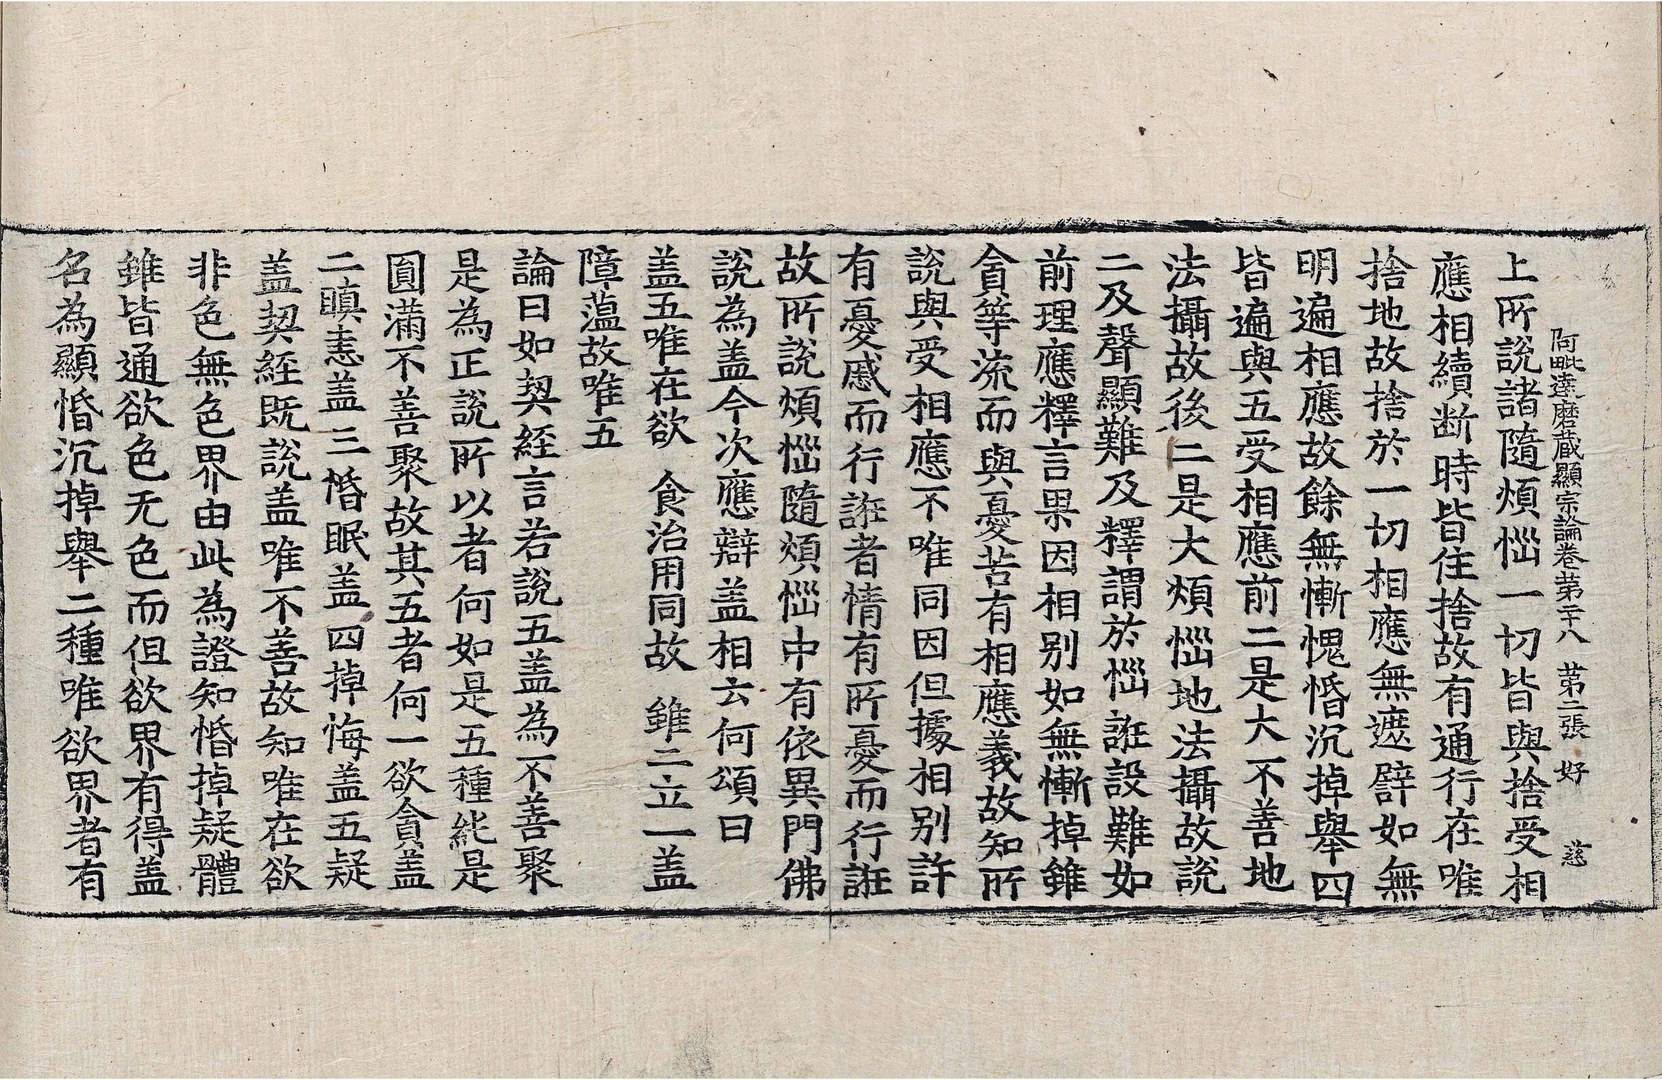 阿毗達磨藏顯宗論卷第二十八　第二張　好　慈
上所說諸隨煩惱一切皆與捨受相
應相續断時皆住捨故有通行在唯
捨地故捨於一切相應無遮譬如無
明遍相應故餘無慚愧惛沉掉舉四
皆遍與五受相應前二是大不善地
法攝故後二是大煩惱地法攝故說
二及聲顯難及釋謂於惱誑設難如
前理應釋言果因相别如無慚掉雖
貪等流而與憂苦有相應義故知所
說與受相應不唯同因但據相别許
有憂慼而行誑者情有所憂而行誑
故所說煩惱隨煩惱中有依異門佛
說為盖今次應辯盖相云何頌曰
盖五唯在欲　食治用同故　雖二立一盖
障蘊故唯五
論曰如契經言若說五盖為不善聚
是為正說所以者何如是五種純是
圓滿不善聚故其五者何一欲貪盖
二瞋恚盖三惛眠盖四掉悔盖五疑
盖契經既說盖唯不善故知唯在欲
非色無色界由此為證知惛掉疑體
雖皆通欲色无色而但欲界有得盖
名為顯惛沉掉舉二種唯欲界者有